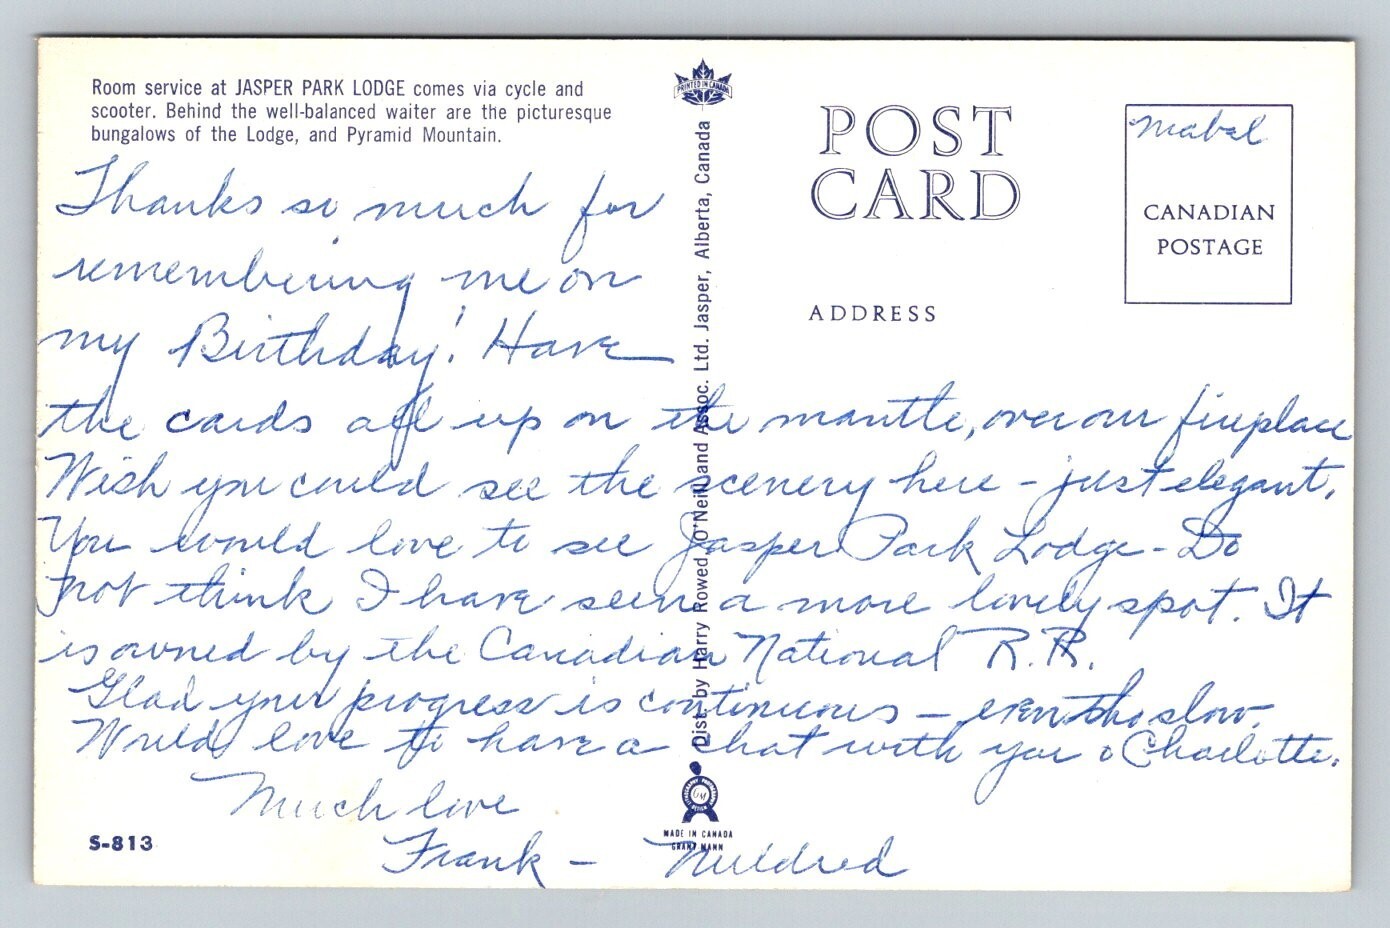 Room service at JASPER PARK LODGE comes via cycle and
scooter. Behind the well-balanced waiter are the picturesque
bungalows of the Lodge, and Pyramid Mountain.
PRINTED IN CANADA
POST
CARD
Mabel
CANADIAN
POSTAGE
ADDRESS
Thanks so much for
remembering me on
my Birthday! Have
the cards all up on the mantle, over our fireplace
Wish you could see the scenery here - just elegant.
You would love to see Jasper Park Lodge - Do
not think I have seen a more lovely spot. It
is owned by the Canadian National R.R.
Glad your progress is continuous - even tho slow.
Would love to have a chat with you & Charlotte.
Much love
Frank - Mildred
Dist. by Harry Rowed, O'Neil and Assoc. Ltd. Jasper, Alberta, Canada
GM
MADE IN CANADA
GRANT MANN
S-813